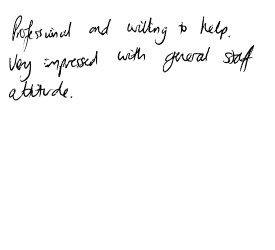 Professional and willing to help.
Very impressed with general staff
attitude.